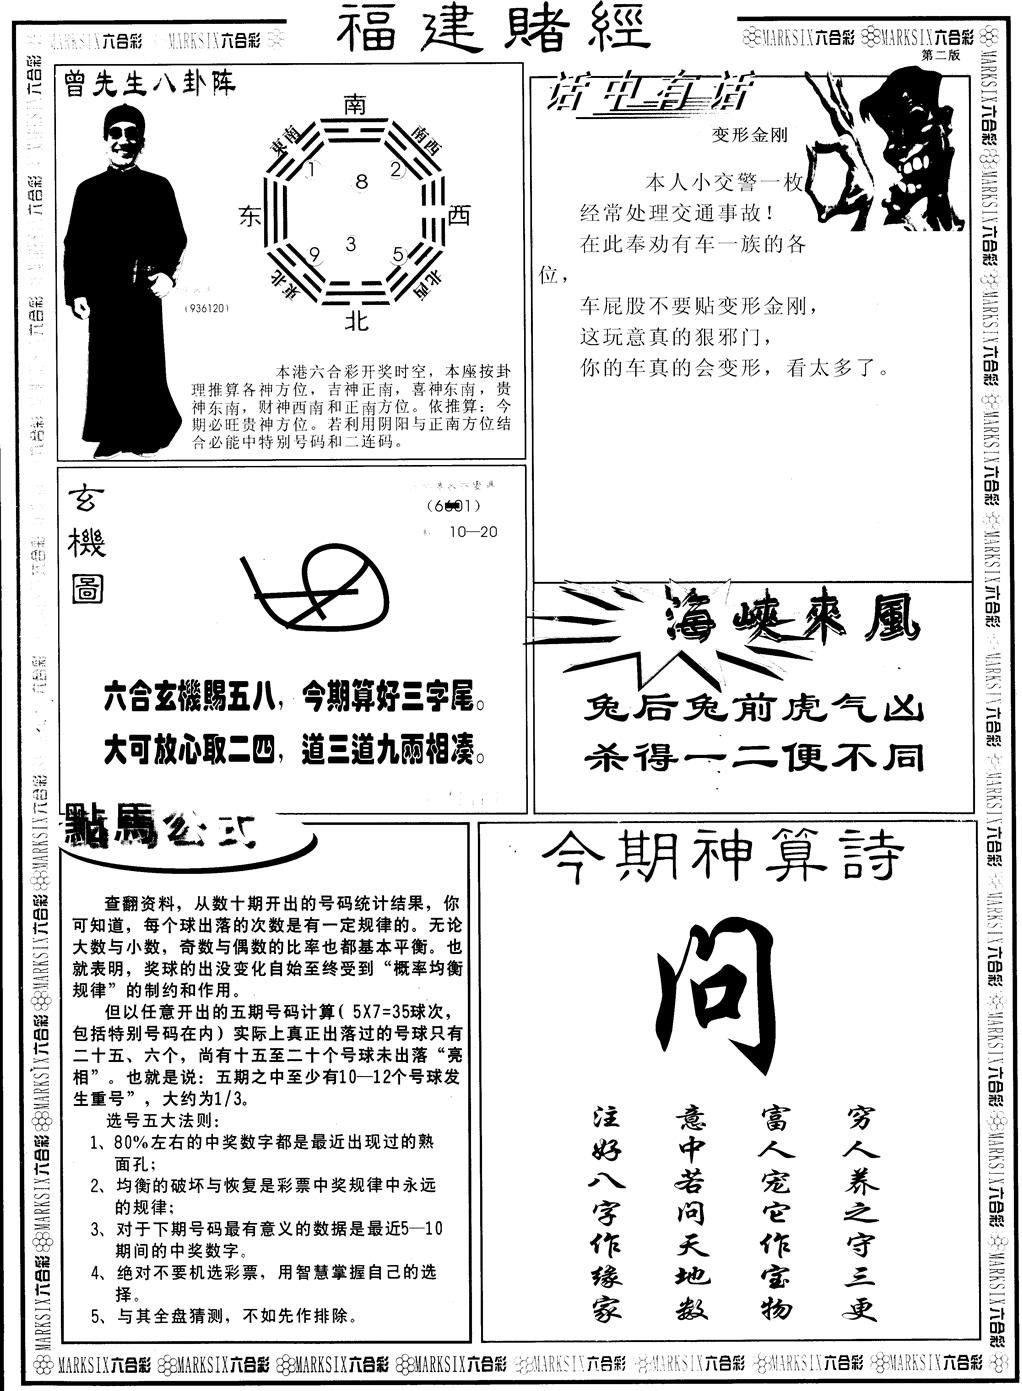 福建賭經
MARKSIX六合彩 MARKSIX六合彩
MARKSIX六合彩 MARKSIX六合彩
第二版
曾先生八卦阵
南
東南
南西
1
8
2
东
西
9
3
5
東北
北西
北
(936120)
本港六合彩开奖时空，本座按卦
理推算各神方位，吉神正南，喜神东南，贵
神东南，财神西南和正南方位。依推算：今
期必旺贵神方位。若利用阴阳与正南方位结
合必能中特别号码和二连码。
话中有话
变形金刚
本人小交警一枚
经常处理交通事故！
在此奉劝有车一族的各
位，
车屁股不要贴变形金刚，
这玩意真的狠邪门，
你的车真的会变形，看太多了。
玄機圖
10—20
六合玄機賜五八，今期算好三字尾。
大可放心取二四，道三道九兩相凑。
海峽來風
兔后兔前虎气凶
杀得一二便不同
點馬公式
查翻资料，从数十期开出的号码统计结果，你
可知道，每个球出落的次数是有一定规律的。无论
大数与小数，奇数与偶数的比率也都基本平衡。也
就表明，奖球的出没变化自始至终受到“概率均衡
规律”的制约和作用。
但以任意开出的五期号码计算( 5X7=35球次，
包括特别号码在内) 实际上真正出落过的号球只有
二十五、六个，尚有十五至二十个号球未出落“亮
相”。也就是说：五期之中至少有10—12个号球发
生重号”，大约为1/3。
选号五大法则：
1、80%左右的中奖数字都是最近出现过的熟
面孔；
2、均衡的破坏与恢复是彩票中奖规律中永远
的规律；
3、对于下期号码最有意义的数据是最近5—10
期间的中奖数字。
4、绝对不要机选彩票，用智慧掌握自己的选
择。
5、与其全盘猜测，不如先作排除。
今期神算詩
问
穷人养之守三更
富人宠它作宝物
意中若问天地数
注好八字作缘家
MARKSIX六合彩 MARKSIX六合彩 MARKSIX六合彩 MARKSIX六合彩 MARKSIX六合彩 MARKSIX六合彩 MARKSIX六合彩 MARKSIX六合彩